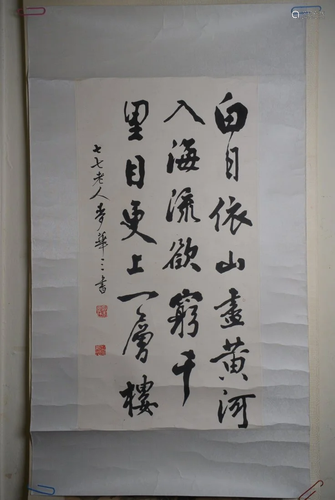 白日依山盡黃河
入海流欲窮千
里目更上一層樓
七七老人華三書